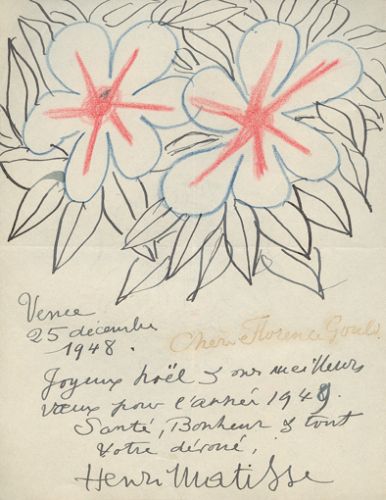 Vence
25 décembre
1948.
Chère Florence Gould.
Joyeux Noël & mes meilleurs
vœux pour l'année 1949.
Santé, Bonheur & tout
Votre dévoué,
Henri Matisse